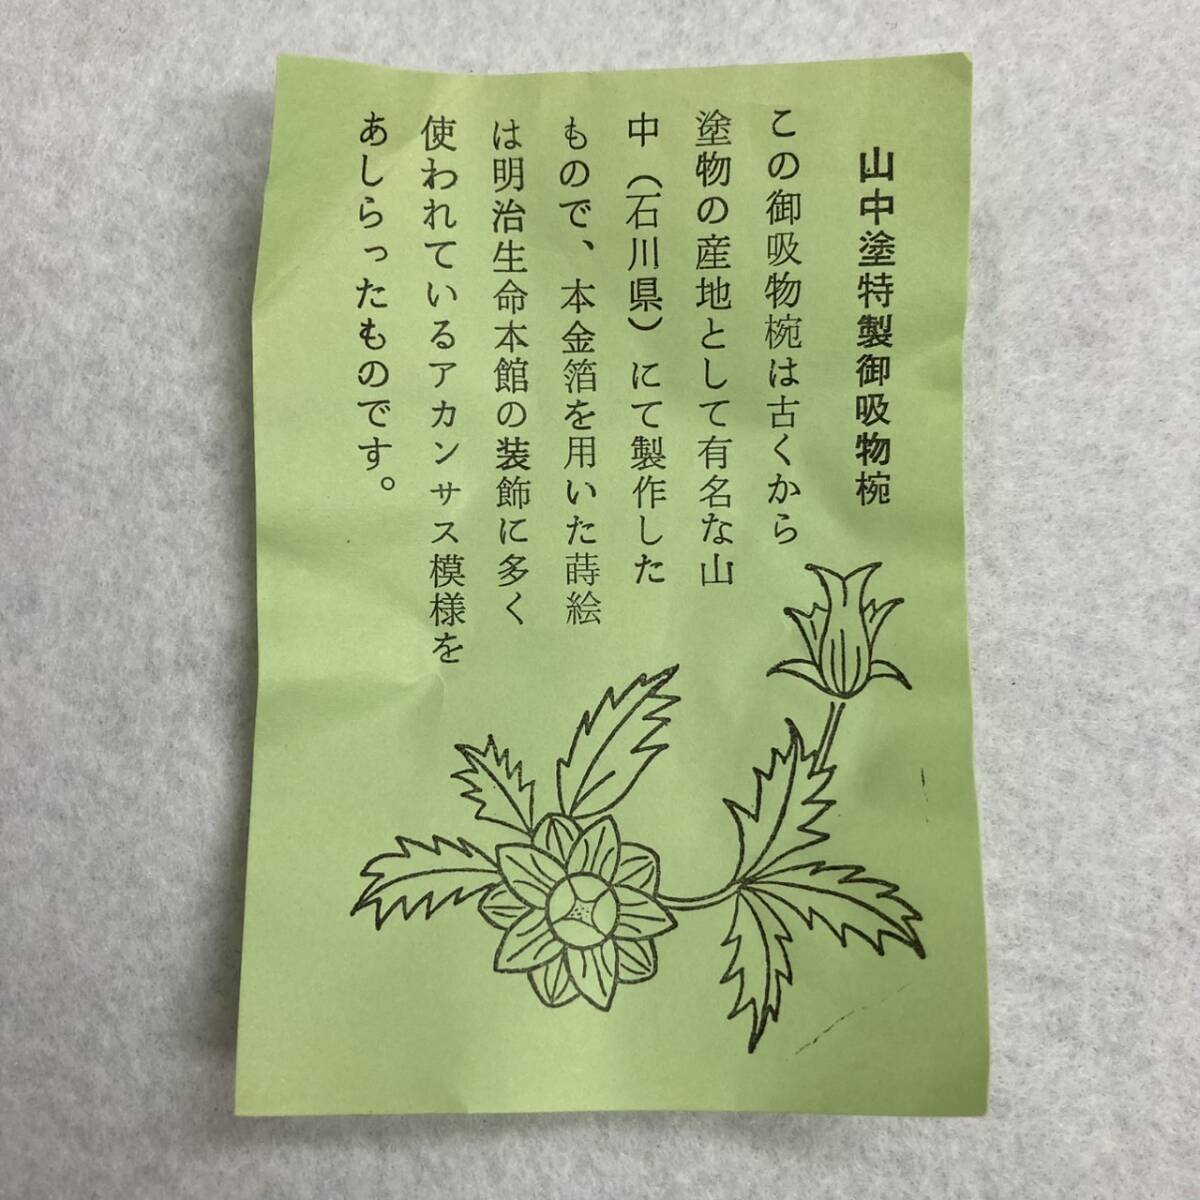 山中塗特製御吸物椀
この御吸物椀は古くから
塗物の産地として有名な山
中（石川県）にて製作した
もので、本金箔を用いた蒔絵
は明治生命本館の装飾に多く
使われているアカンサス模様を
あしらったものです。